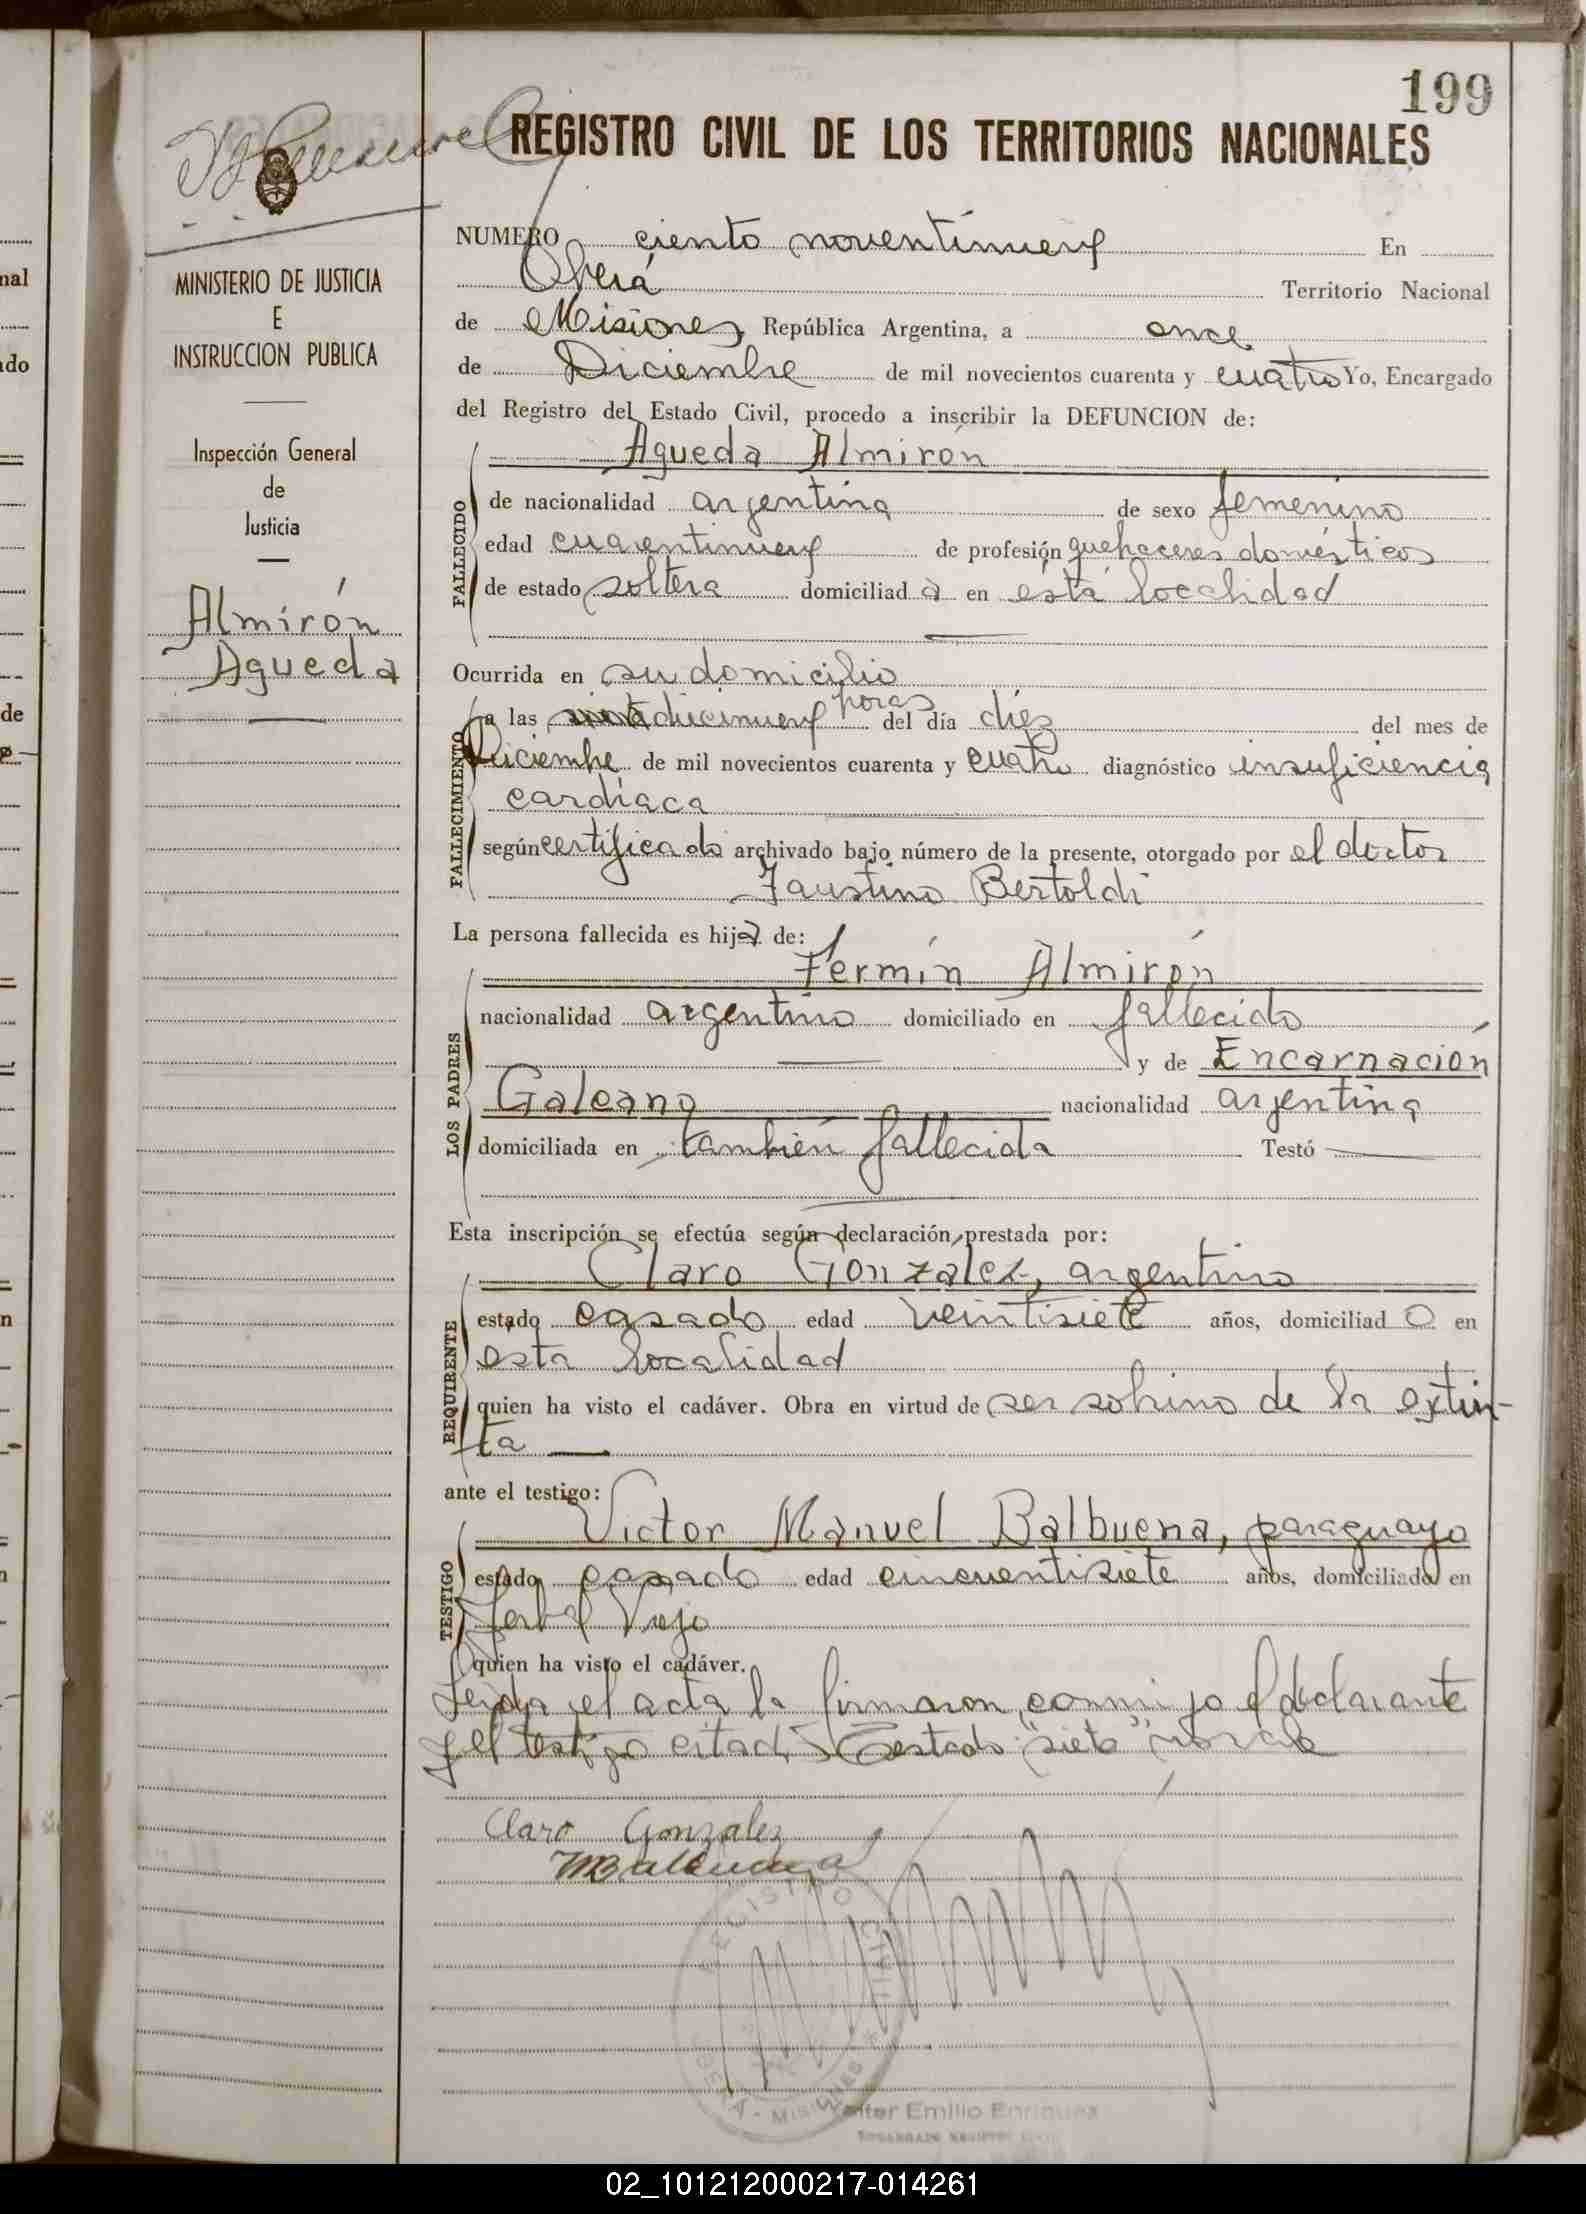 199
REGISTRO CIVIL DE LOS TERRITORIOS NACIONALES
MINISTERIO DE JUSTICIA
E
INSTRUCCION PUBLICA
Inspección General
de
Justicia
Almirón
Agueda
NUMERO ciento noventinueve En
Oberá Territorio Nacional
de Misiones República Argentina, a once
de Diciembre de mil novecientos cuarenta y cuatro Yo, Encargado
del Registro del Estado Civil, procedo a inscribir la DEFUNCION de:
Agueda Almirón
FALLECIDO
de nacionalidad argentina de sexo femenino
edad cuarentinueve de profesión quehaceres domésticos
de estado soltera domiciliad a en esta localidad
Ocurrida en su domicilio
FALLECIMIENTO
a las diecinueve horas del día diez del mes de
Diciembre de mil novecientos cuarenta y cuatro diagnóstico insuficiencia
cardíaca
según certificado archivado bajo número de la presente, otorgado por el doctor
Faustino Bertoldi
La persona fallecida es hija de:
LOS PADRES
Fermín Almirón
nacionalidad argentino domiciliado en fallecido
y de Encarnación
Galeano nacionalidad argentina
domiciliada en también fallecida Testó
Esta inscripción se efectúa según declaración prestada por:
REQUIRENTE
Claro Gonzalez, argentino
estado casado edad veintisiete años, domiciliad o en
esta localidad
quien ha visto el cadáver. Obra en virtud de ser sobrino de la extin-
ta
ante el testigo:
TESTIGO
Victor Manuel Balbuena, paraguayo
estado casado edad cincuentisiete años, domiciliado en
Yerbal Viejo
quien ha visto el cadáver.
Leida el acta la firmaron conmigo el declarante
y el testigo citado Testado "siete" no vale
Claro Gonzalez
MBalbuena
REGISTRO CIVIL
OBERÁ - MISIONES
Walter Emilio Enriquez
ENCARGADO REGISTRO CIVIL
02_101212000217-014261